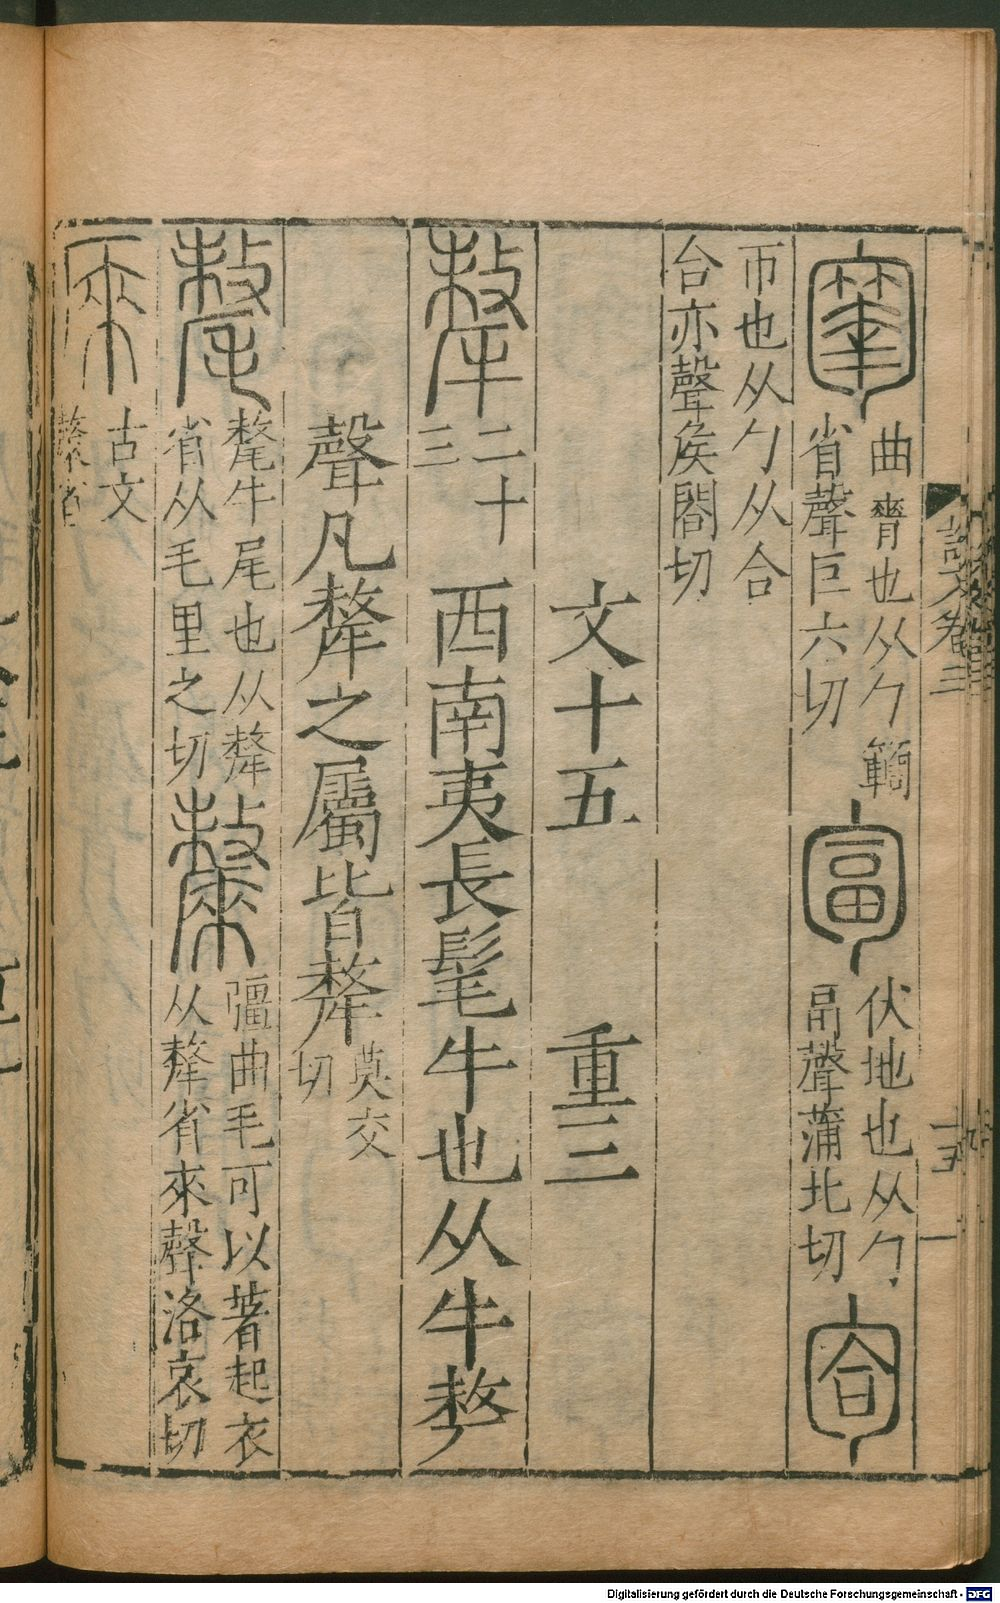 曲脊也从勹𥷚
省聲巨六切
伏地也从勹
畐聲蒲北切
帀也从勹从合
合亦聲矦閤切
文十五 重三
二十
三
西南夷長髦牛也从牛𠩺
聲凡犛之屬皆犛
莫交
切
犛牛尾也从犛
省从毛里之切
彊曲毛可以著起衣
从犛省來聲洛哀切
古文
省
Digitalisierung gefördert durch die Deutsche Forschungsgemeinschaft - DFG